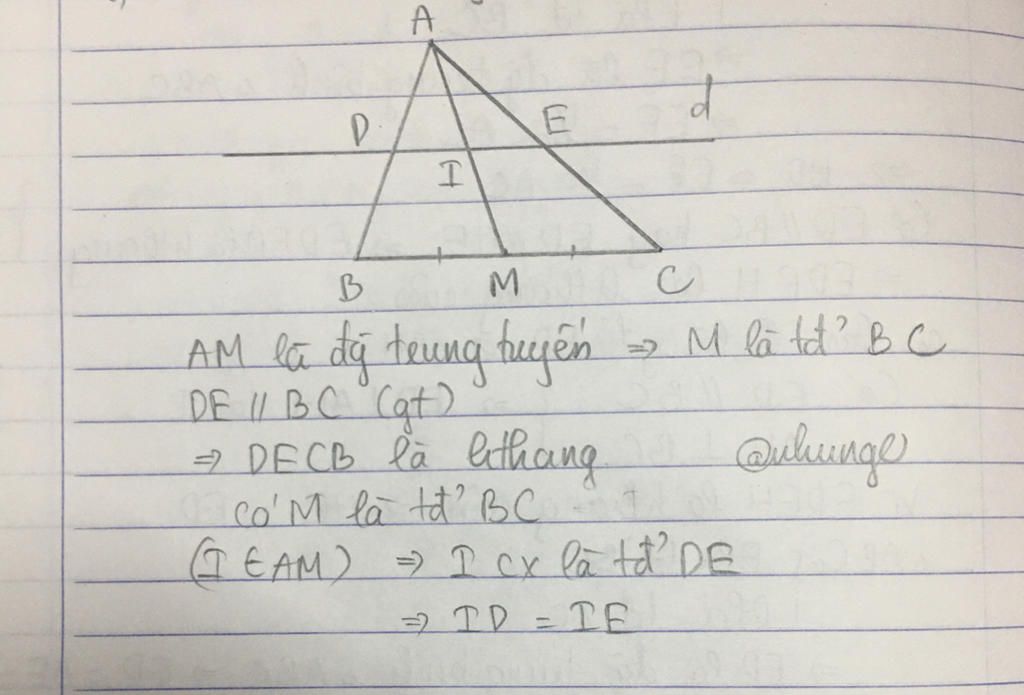 A
D
E
d
I
B
M
C
AM là đg̃ trung tuyến ⇒ M là tđ' BC
DE // BC (gt)
⇒ DECB là hthang
@nhunge
có M là tđ' BC
(I ∈ AM) ⇒ I cx là tđ' DE
⇒ ID = IE